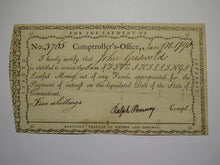 FOR THE PAYMENT OF
No. 3765 Comptroller's-Office, Jan 1790
I hereby certify, that John Griswold
is entitled to receive the Sum of FIVE SHILLINGS
Lawful Money, out of any Funds appropriated for the
Payment of interest on the liquidated Debt of the State of
Connecticut.
Five Shillings Ralph Pomeroy Compt.
HARTFORD: PRINTED BY HUDSON AND GOODWIN.